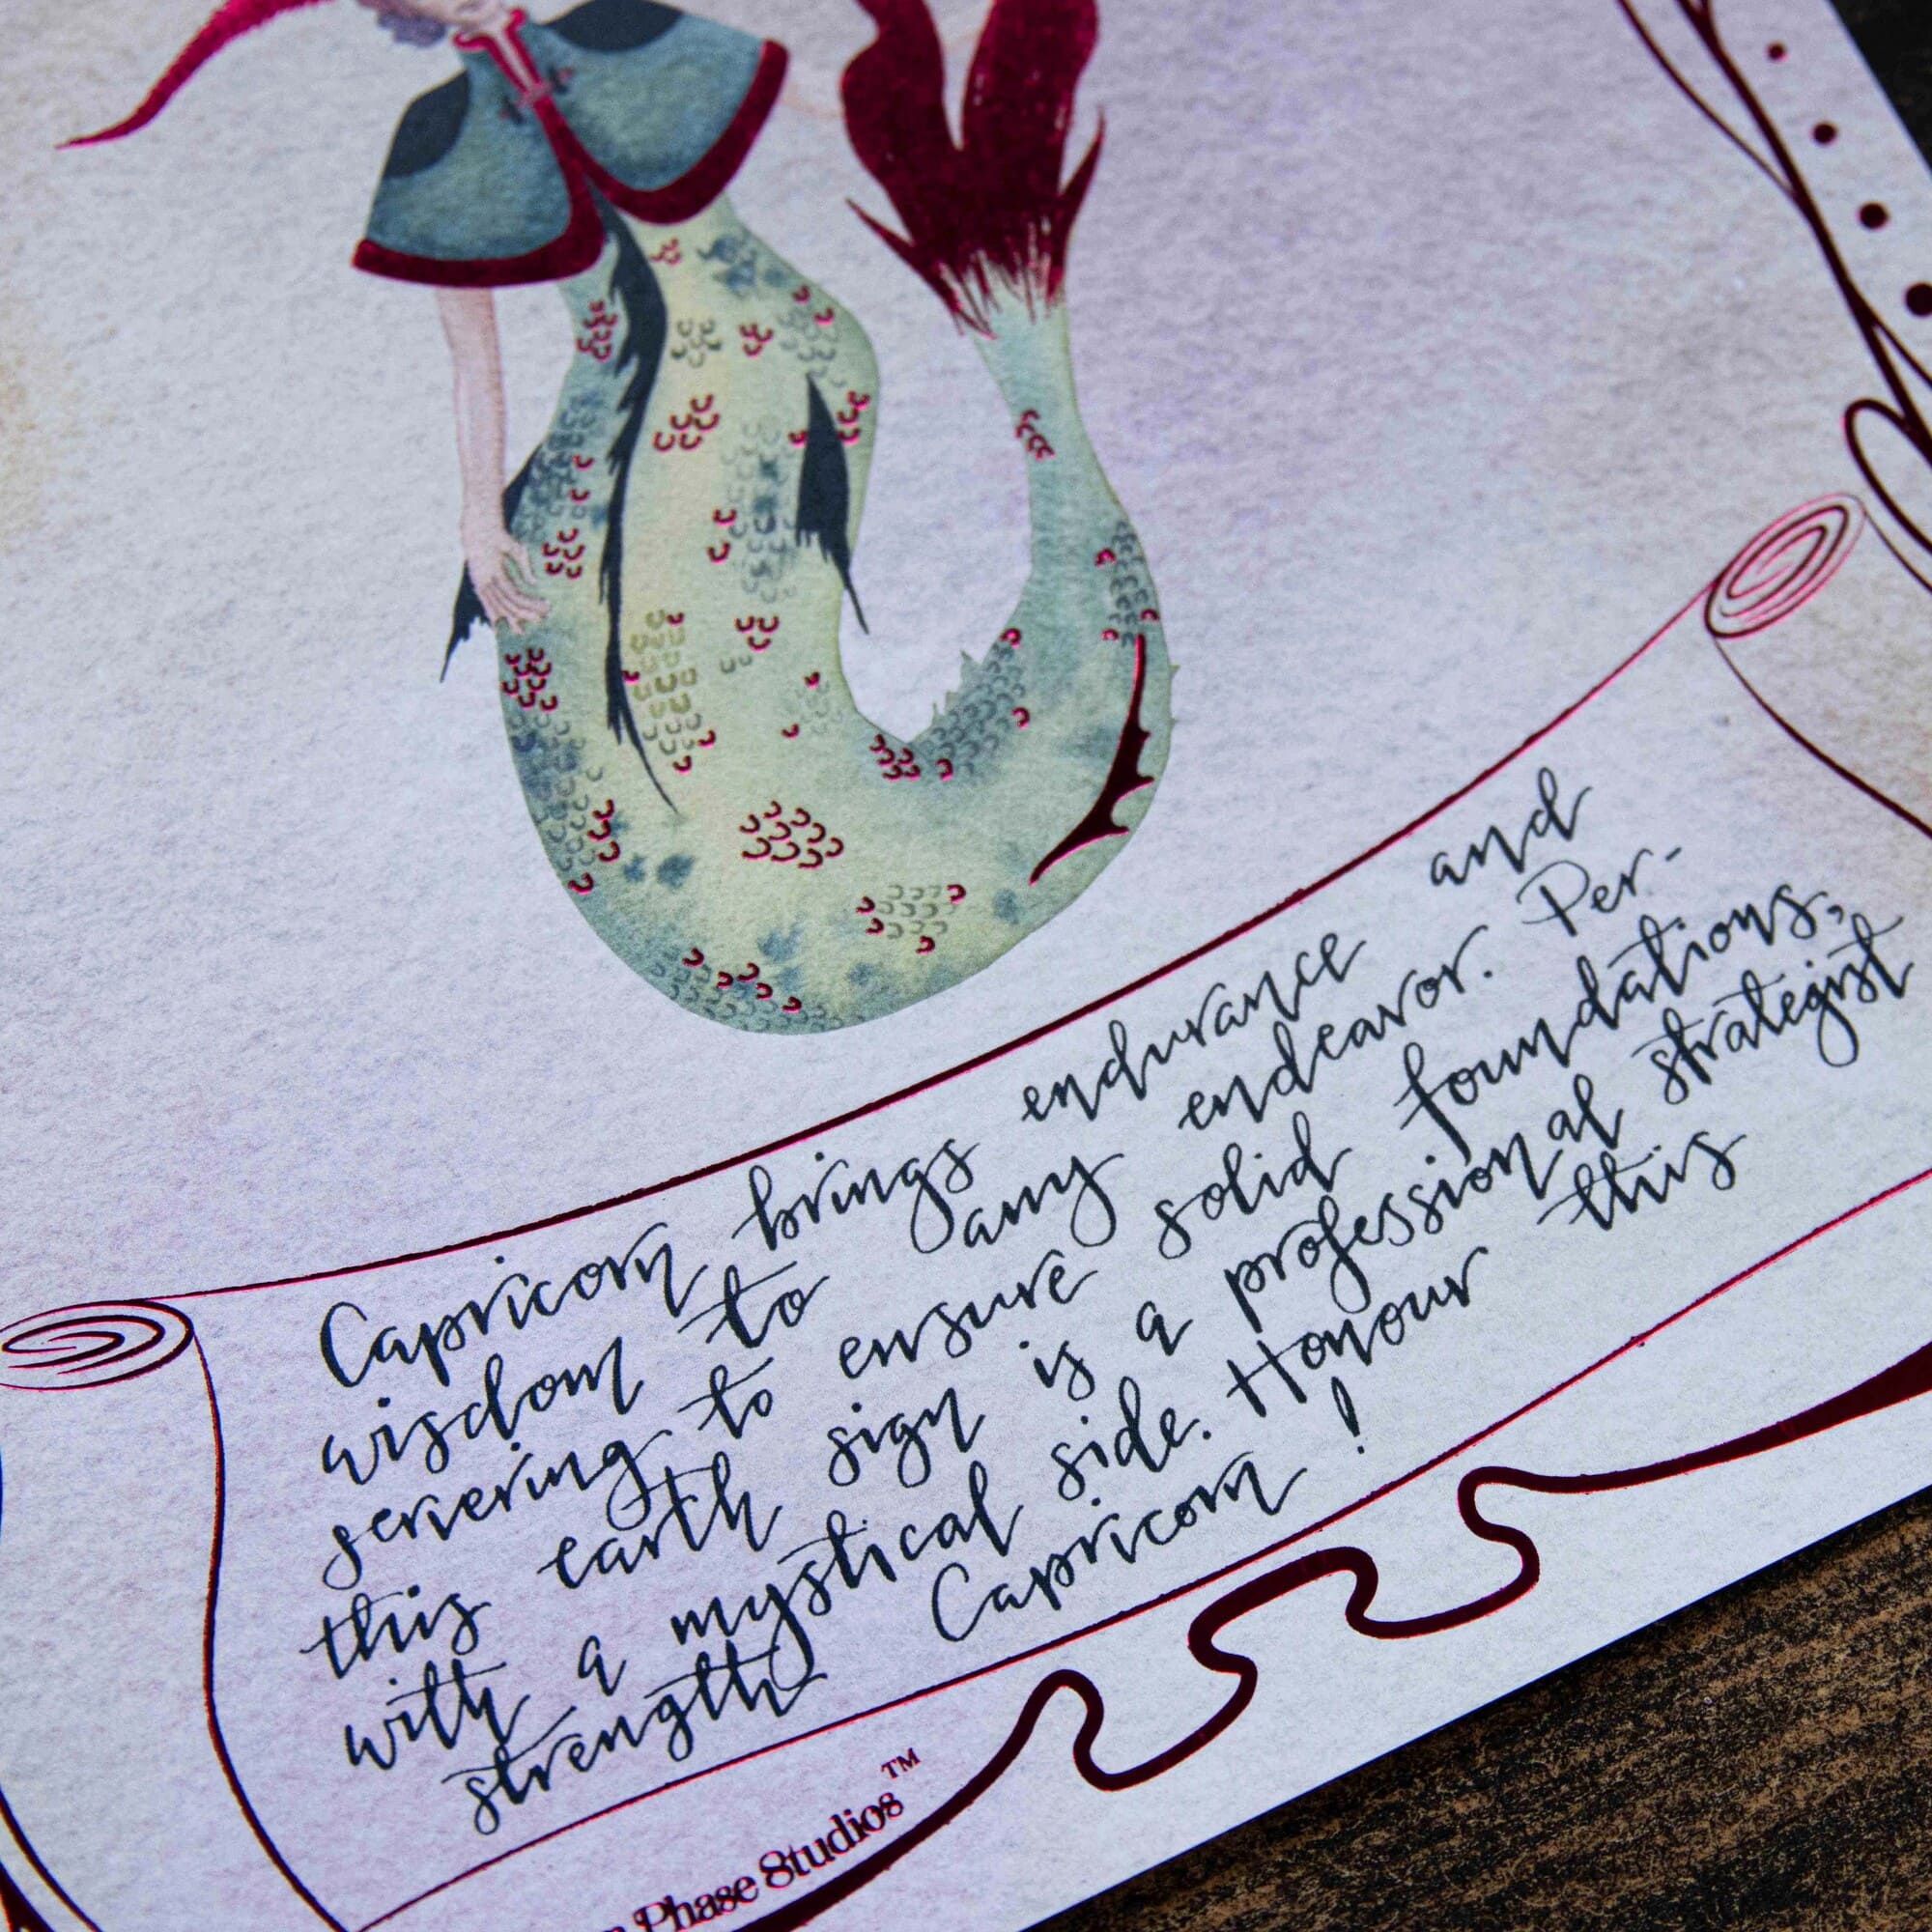 Capricorn brings endurance and
wisdom to any endeavor. Per-
severing to ensure solid foundations,
this earth sign is a professional strategist
with a mystical side. Honour this
strength Capricorn!
Phase Studios™